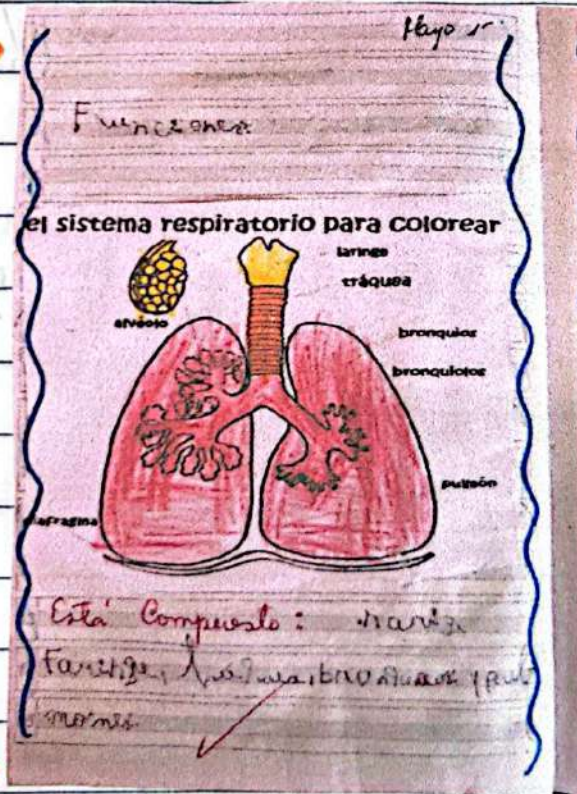 Mayo
Funciones
el sistema respiratorio para colorear
laringe
tráquea
alvéolo
bronquios
bronquiolos
pulmón
diafragma
Está Compuesto: nariz
Faringe, tráquea, bronquios y pul
mones